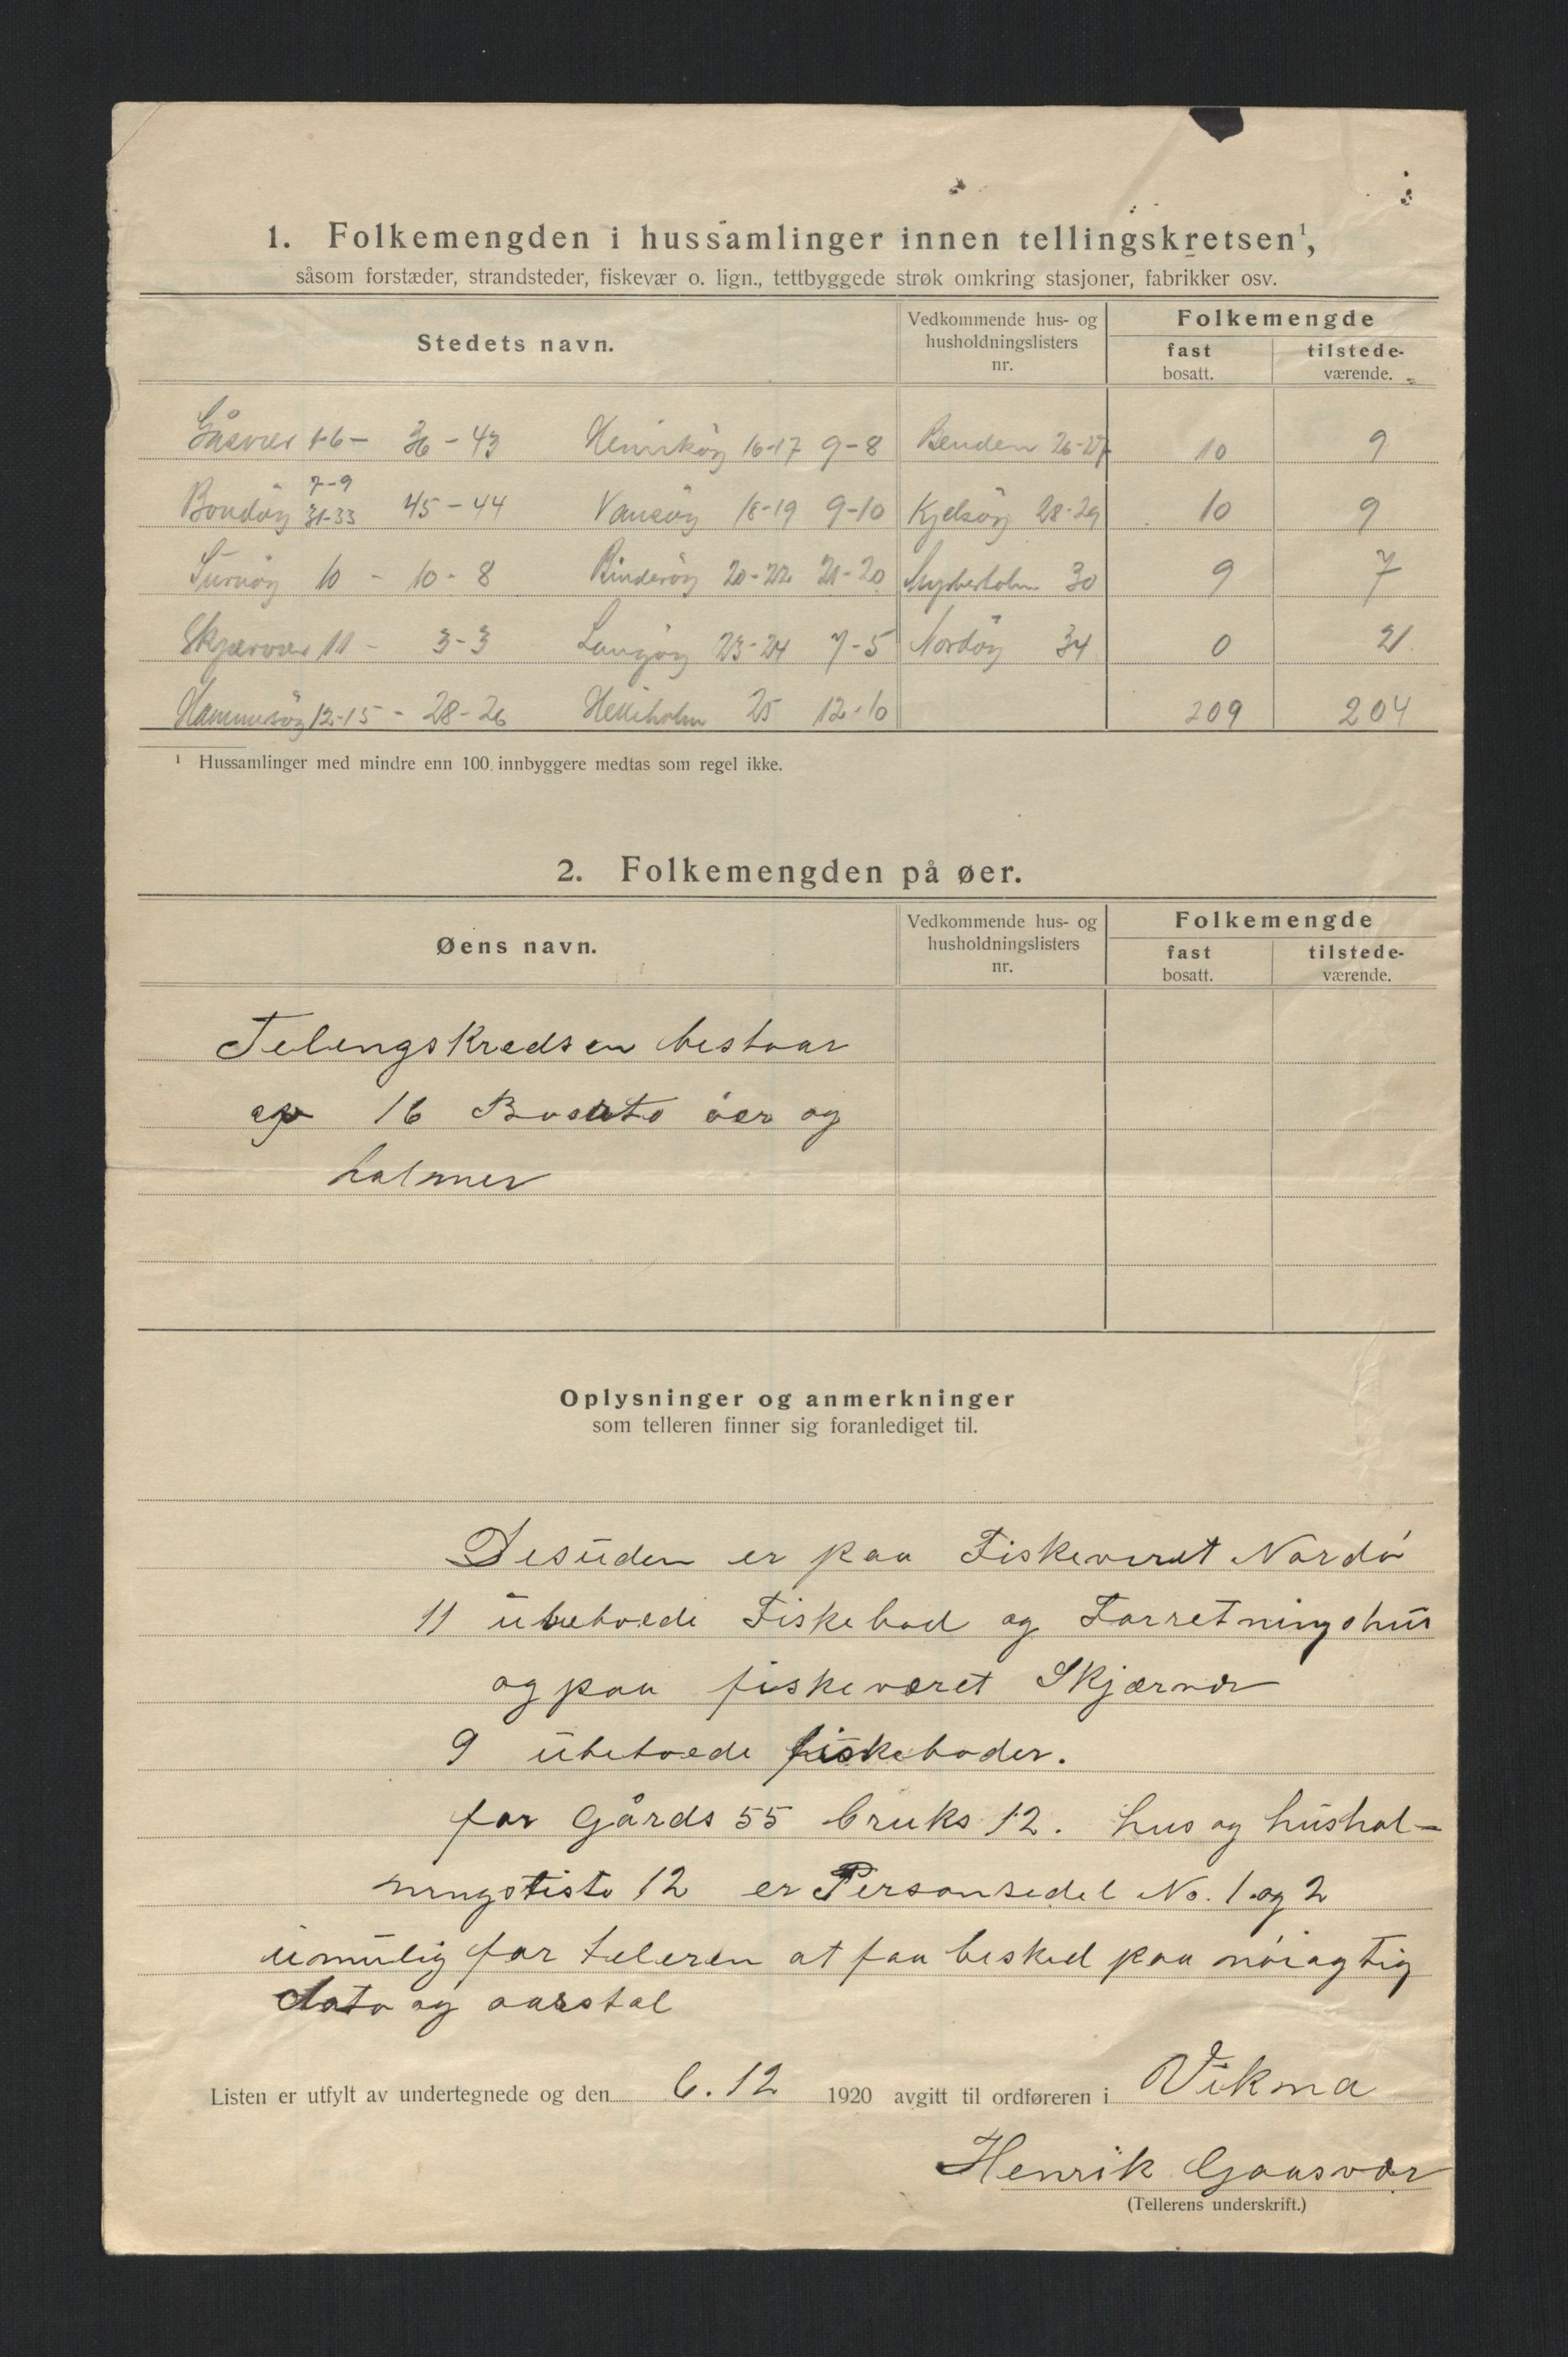 1. Folkemengden i hussamlinger innen tellingskretsen¹,
såsom forstæder, strandsteder, fiskevær o. lign., tettbyggede strøk omkring stasjoner, fabrikker osv.
Stedets navn.
Vedkommende hus- og husholdningslisters nr.
Folkemengde
fast bosatt.
tilstede-værende.
Gåsvær 1-6 - 36 - 43 16-17 9-8 Benden 26-27 10 9
7-9
Bondöy 31-33 45 - 44 Vansöy 18-19 9-10 Kjelsöy 28-29 10 9
10 - 10 - 8 Rinderöy 20-22 21-20 30 9 7
Skjærvær 11 - 3-3 Langöy 23-24 7-5 Nordöy 34 0 21
12-15 - 28-26 25 12-10 209 204
¹ Hussamlinger med mindre enn 100 innbyggere medtas som regel ikke.
2. Folkemengden på øer.
Øens navn.
Vedkommende hus- og husholdningslisters nr.
Folkemengde
fast bosatt.
tilstede-værende.
Telengskredsen bestaar
af 16 Bosato öer og
holmer
Oplysninger og anmerkninger
som telleren finner sig foranlediget til.
Desuden er paa Fiskeveret Nordö
11 ubeboede Fiskebod og Forretningshus
og paa fiskeværet Skjærvær
9 ubeboede fiskeboder.
for Gårds 55 bruks 12. hus og hushol-
ningsliste 12 er Personsedel No. 1 og 2
umulig for teleren at faa besked paa nöiagtig
dato og aarstal
Listen er utfylt av undertegnede og den 6.12 1920 avgitt til ordføreren i Vikna
Henrik Gaasvær
(Tellerens underskrift.)